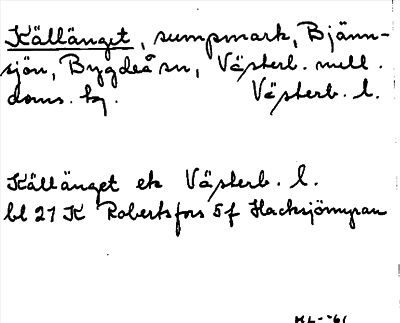 Källänget, sumpmark, Bjänn-
sjön, Bygdeå sn, Västerb. mell.
doms. kg. Västerb. l.
Källänget ek Västerb. l.
bl 21 K Robertsfors 5 f Hacksjömyran
ML-61